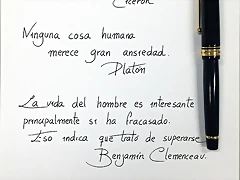 Cicerón
Ninguna cosa humana
merece gran ansiedad.
Platón
La vida del hombre es interesante
principalmente si ha fracasado.
Eso indica que trató de superarse.
Benjamín Clemenceau.